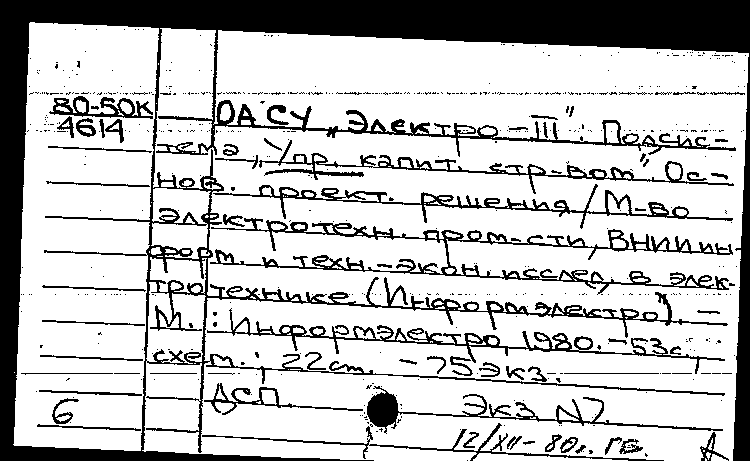 80-50К
4614
ОАСУ „Электро-III": Подсис-
тема „Упр. капит. стр-вом". Ос-
нов. проект. решения / М-во
электротехн. пром-сти, ВНИИ ин-
форм. и техн.-экон. исслед. в элек-
тротехнике (Информэлектро"). -
М. : Информэлектро, 1980. - 53с.,
схем.; 22см. - 75экз.
ДСП.
Экз N7.
6
12/XII-80г. ГБ.